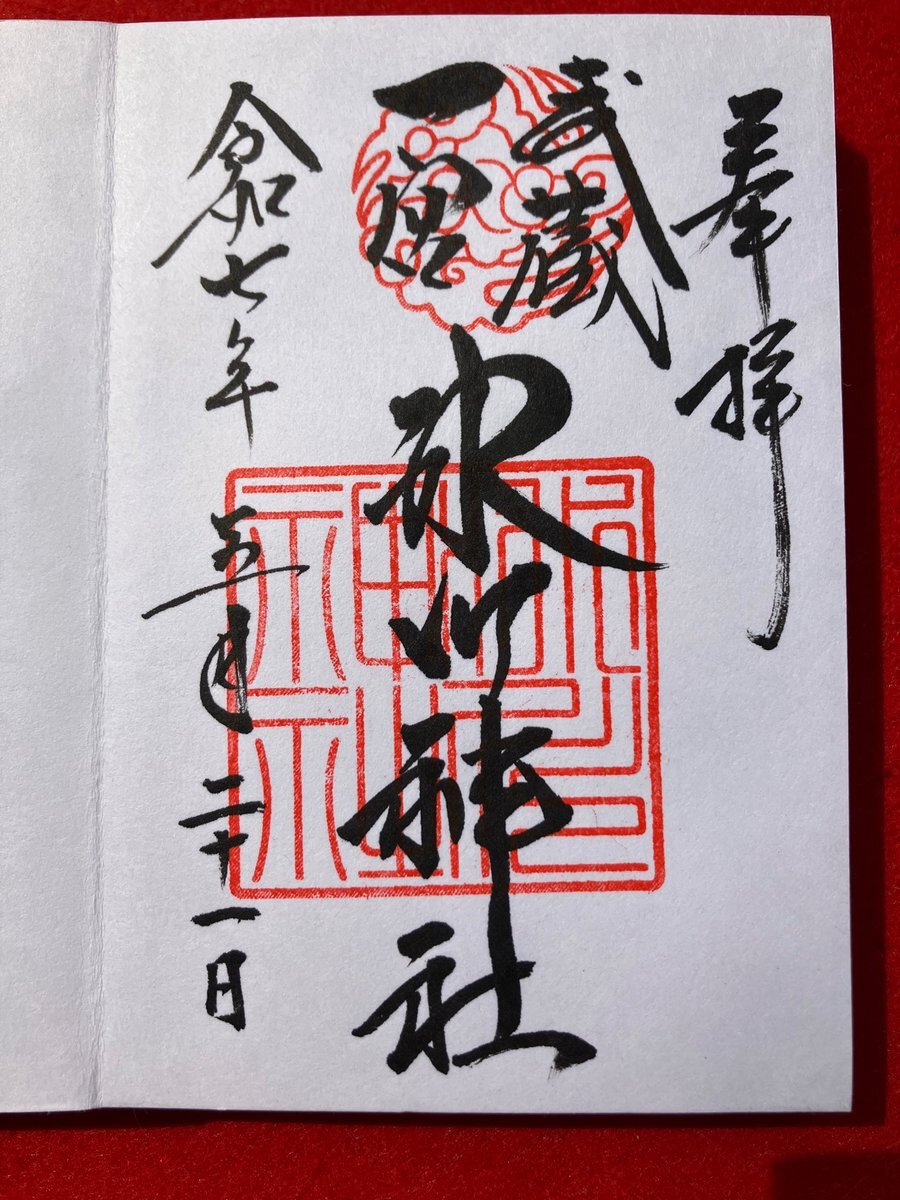 奉拝
武蔵
一宮
氷川神社
令和七年
五月二十一日